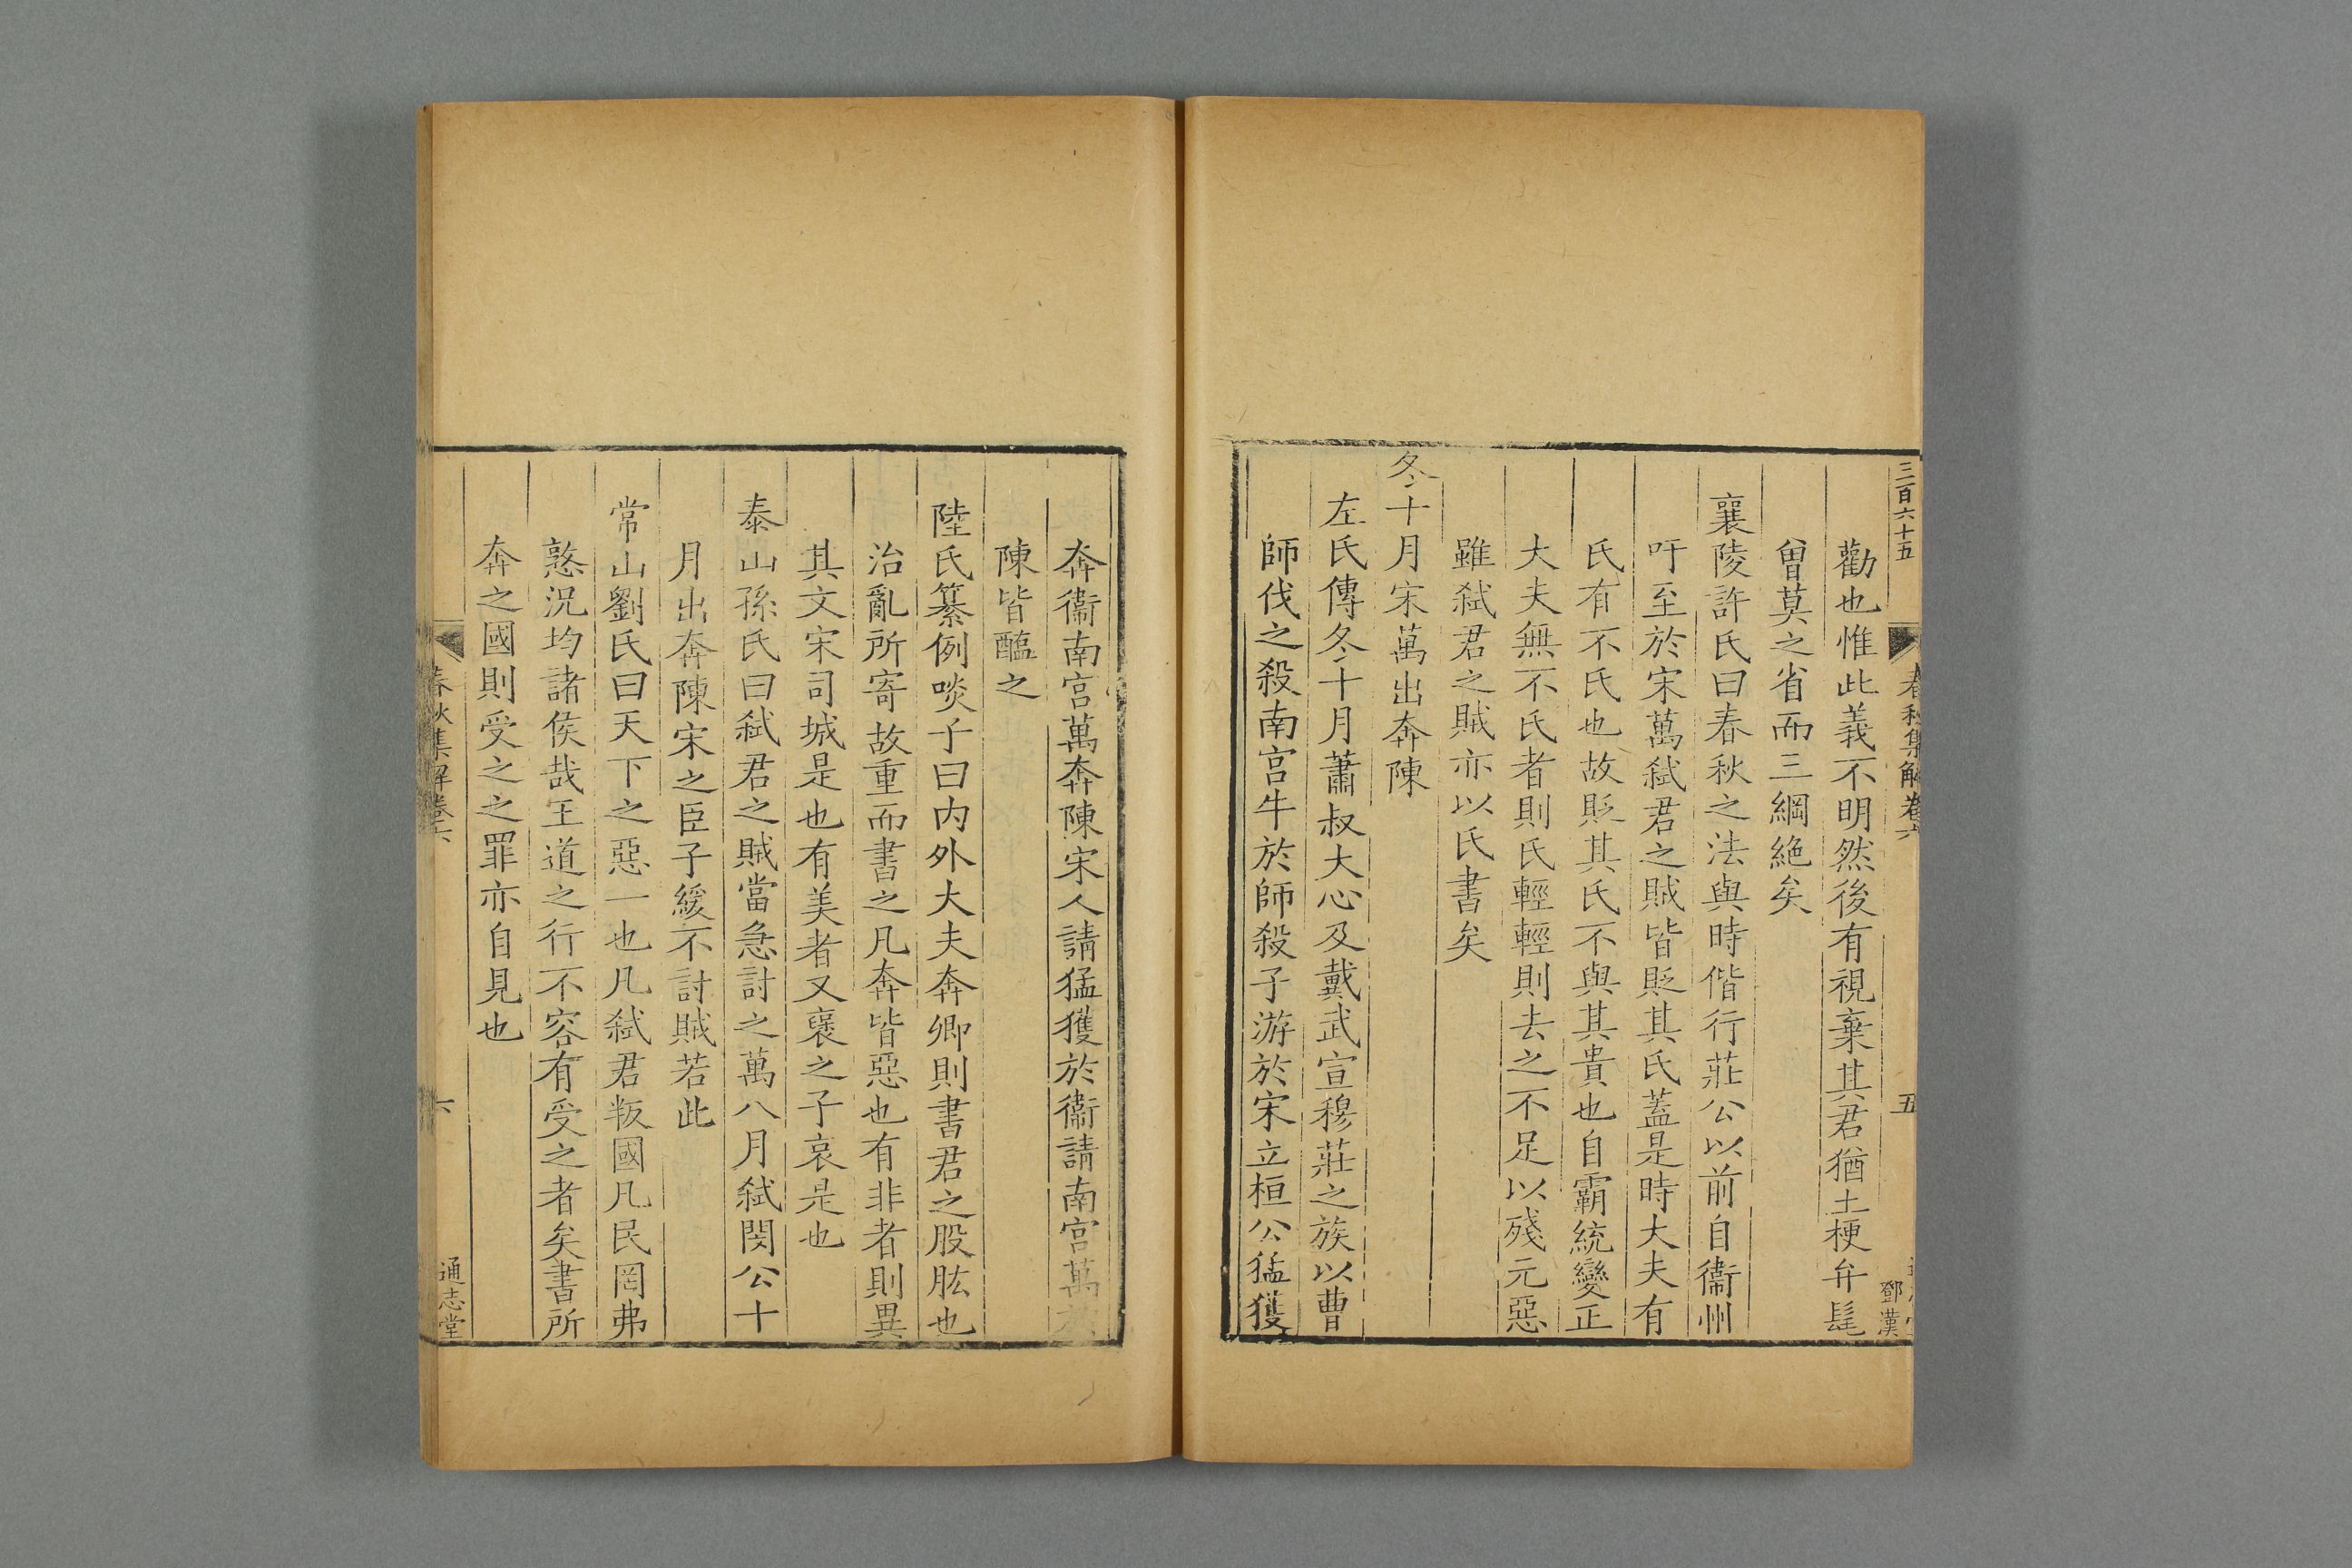 三百六十五
春秋集解卷六
五
鄧漢
勸也惟此義不明然後有視棄其君猶土梗弁髦
曾莫之省而三綱絶矣
襄陵許氏曰春秋之法與時偕行莊公以前自衞州
吁至於宋萬弑君之賊皆貶其氏蓋是時大夫有
氏有不氏也故貶其氏不與其貴也自霸統變正
大夫無不氏者則氏輕輕則去之不足以殘元惡
雖弑君之賊亦以氏書矣
冬十月宋萬出奔陳
左氏傳冬十月蕭叔大心及戴武宣穆莊之族以曹
師伐之殺南宫牛於師殺子游於宋立桓公猛獲
奔衞南宫萬奔陳宋人請猛獲於衞請南宫萬於
陳皆醢之
陸氏纂例啖子曰内外大夫奔卿則書君之股肱也
治亂所寄故重而書之凡奔皆惡也有非者則異
其文宋司城是也有美者又襃之子哀是也
泰山孫氏曰弑君之賊當急討之萬八月弑閔公十
月出奔陳宋之臣子緩不討賊若此
常山劉氏曰天下之惡一也凡弑君叛國凡民罔弗
憝况均諸侯哉王道之行不容有受之者矣書所
奔之國則受之之罪亦自見也
春秋集解卷六
六
通志堂